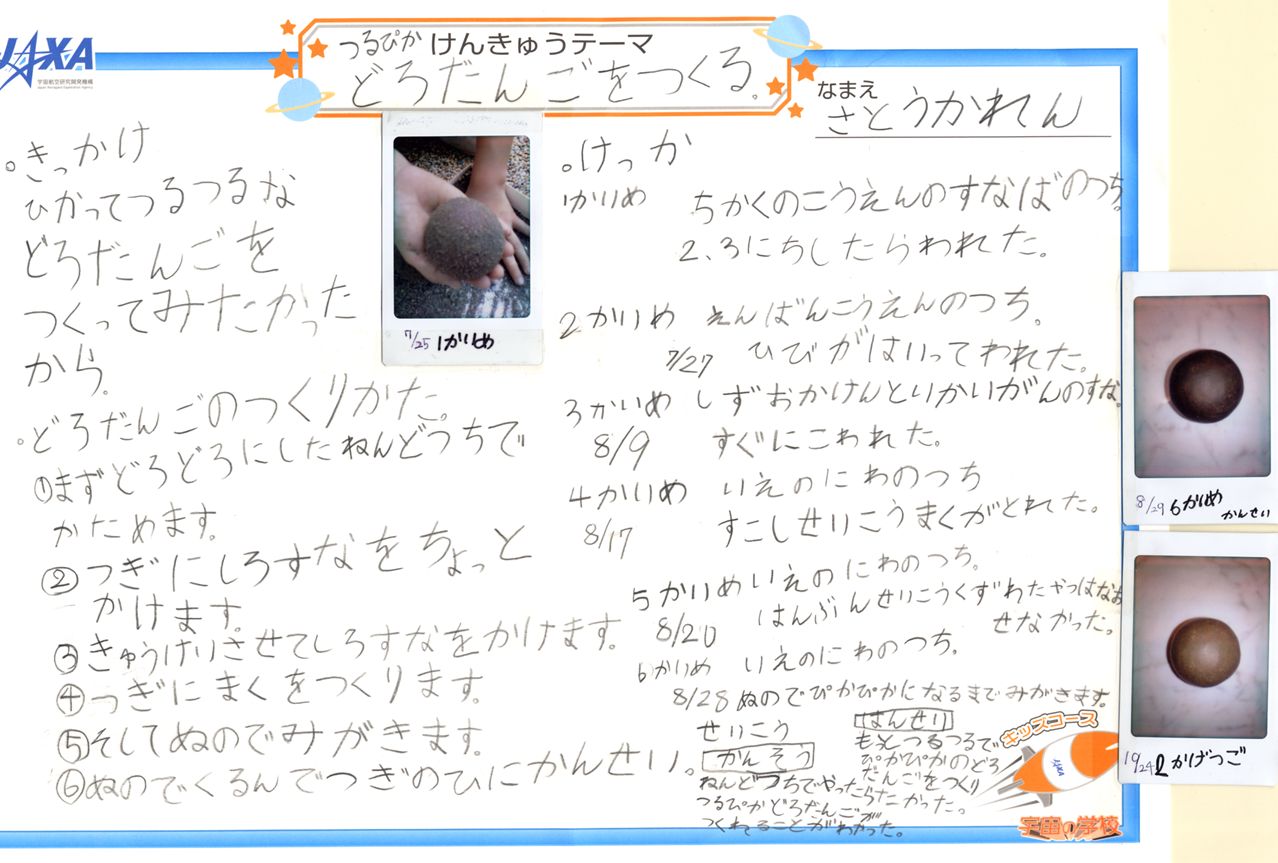 JAXA
宇宙航空研究開発機構
Japan Aerospace Exploration Agency
つるぴかけんきゅうテーマ
どろだんごをつくる。
なまえ
さとうかれん
。きっかけ
ひかってつるつるな
どろだんごを
つくってみたかった
から。
7/25 1かいめ
。どろだんごのつくりかた。
①まずどろどろにしたねんどつちで
かためます。
②つぎにしろすなをちょっと
かけます。
③きゅうけいさせてしろすなをかけます。
④つぎにまくをつくります。
⑤そしてぬのでみがきます。
⑥ぬのでくるんでつぎのひにかんせい。
。けっか
1かいめ ちかくのこうえんのすなばのつち。
2、3にちしたらわれた。
2かいめ えんばんこうえんのつち。
7/27 ひびがはいってわれた。
3かいめ しずおかけんとりかいがんのすな。
8/9 すぐにこわれた。
4かいめ いえのにわのつち
8/17 すこしせいこうまくがとれた。
5かいめ いえのにわのつち。
8/20 はんぶんせいこうくずわたやつはなお
せなかった。
6かいめ いえのにわのつち。
8/28 ぬのでぴかぴかになるまでみがきます。
せいこう
かんそう
ねんどつちでやったら
つるぴかどろだんごが
つくれることがわかった。
はんせい
もっとつるつるで
ぴかぴかのどろ
だんごをつくり
たかった。
キッズコース
JAXA
宇宙の学校
8/29 6かいめ
かんせい
10/24 2かげつご